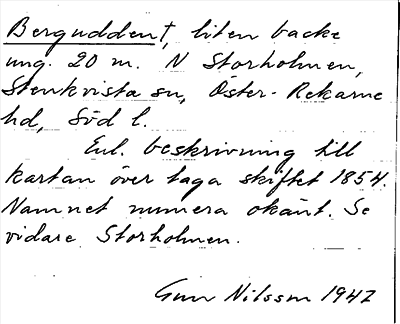 Berguddent, liten backe
ung. 20 m. N Storholmen,
Stenkvista sn, Öster-Rekarne
hd, Söd l.
Enl. beskrivning till
kartan över laga skiftet 1854.
Namnet numera okänt. Se
vidare Storholmen.
Gun Nilsson 1947